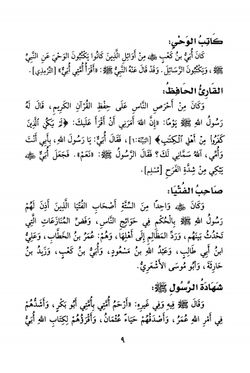 كَاتِبُ الوَحْيِ:
كَانَ أُبَيُّ بْنُ كَعْبٍ ﷺ مِنْ أَوَائِلِ الَّذِينَ كَانُوا يَكْتُبُونَ الوَحْيَ عَنِ النَّبِيِّ
ﷺ، وَيَكْتُبُونَ الرَّسَائِلَ. وَقَدْ قَالَ عَنْهُ النَّبِيُّ ﷺ: «أَقْرَأُ أُمَّتِي أُبَيٌّ» [التِّرْمِذِي].
القَارِئُ الحَافِظُ:
وَكَانَ مِنْ أَحْرَصِ النَّاسِ عَلَى حِفْظِ القُرْآنِ الكَرِيمِ، قَالَ لَهُ
رَسُولُ اللهِ ﷺ يَوْمًا: «إِنَّ اللهَ أَمَرَنِي أَنْ أَقْرَأَ عَلَيْكَ: ﴿لَمْ يَكُنِ الَّذِينَ
كَفَرُوا مِنْ أَهْلِ الْكِتَابِ﴾ [البَيِّنَة: ١]، قَالَ أُبَيٌّ: يَا رَسُولَ اللهِ، بِأَبِي أَنْتَ
وَأُمِّي، آللهُ سَمَّانِي لَكَ؟ قَالَ الرَّسُولُ ﷺ: «نَعَمْ». فَجَعَلَ أُبَيٌّ
يَبْكِي مِنْ شِدَّةِ الفَرَحِ [مُسْلِم].
صَاحِبُ الفُتْيَا:
وَكَانَ وَاحِدًا مِنَ السِّتَّةِ أَصْحَابِ الفُتْيَا الَّذِينَ أَذِنَ لَهُمْ
رَسُولُ اللهِ ﷺ بِالحُكْمِ فِي حَوَائِجِ النَّاسِ، وَفَضِّ المُنَازَعَاتِ الَّتِي
تَحْدُثُ بَيْنَهُمْ، وَرَدِّ المَظَالِمِ إِلَى أَهْلِهَا، وَهُمْ: عُمَرُ بْنُ الخَطَّابِ، وَعَلِيُّ
ابْنُ أَبِي طَالِبٍ، وَعَبْدُ اللهِ بْنُ مَسْعُودٍ، وَأُبَيُّ بْنُ كَعْبٍ، وَزَيْدُ بْنُ
حَارِثَةَ، وَأَبُو مُوسَى الأَشْعَرِيُّ.
شَهَادَةُ الرَّسُولِ ﷺ:
وَقَالَ ﷺ فِيهِ وَفِي غَيْرِهِ: «أَرْحَمُ أُمَّتِي بِأُمَّتِي أَبُو بَكْرٍ، وَأَشَدُّهُمْ
فِي أَمْرِ اللهِ عُمَرُ، وَأَصْدَقُهُمْ حَيَاءً عُثْمَانُ، وَأَقْرَؤُهُمْ لِكِتَابِ اللهِ أُبَيُّ
٩